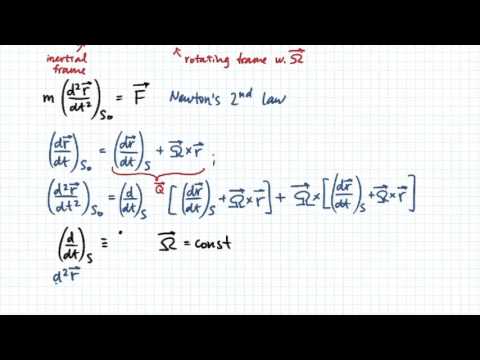 inertial frame
rotating frame w. Ω⃗
m (d²r⃗/dt²)_S₀ = F⃗ Newton's 2nd law
(dr⃗/dt)_S₀ = (dr⃗/dt)_S + Ω⃗ × r⃗ ;
Q⃗
(d²r⃗/dt²)_S₀ = (d/dt)_S [(dr⃗/dt)_S + Ω⃗ × r⃗] + Ω⃗ × [(dr⃗/dt)_S + Ω⃗ × r⃗]
(d/dt)_S ≡ · Ω⃗ = const
d²r⃗